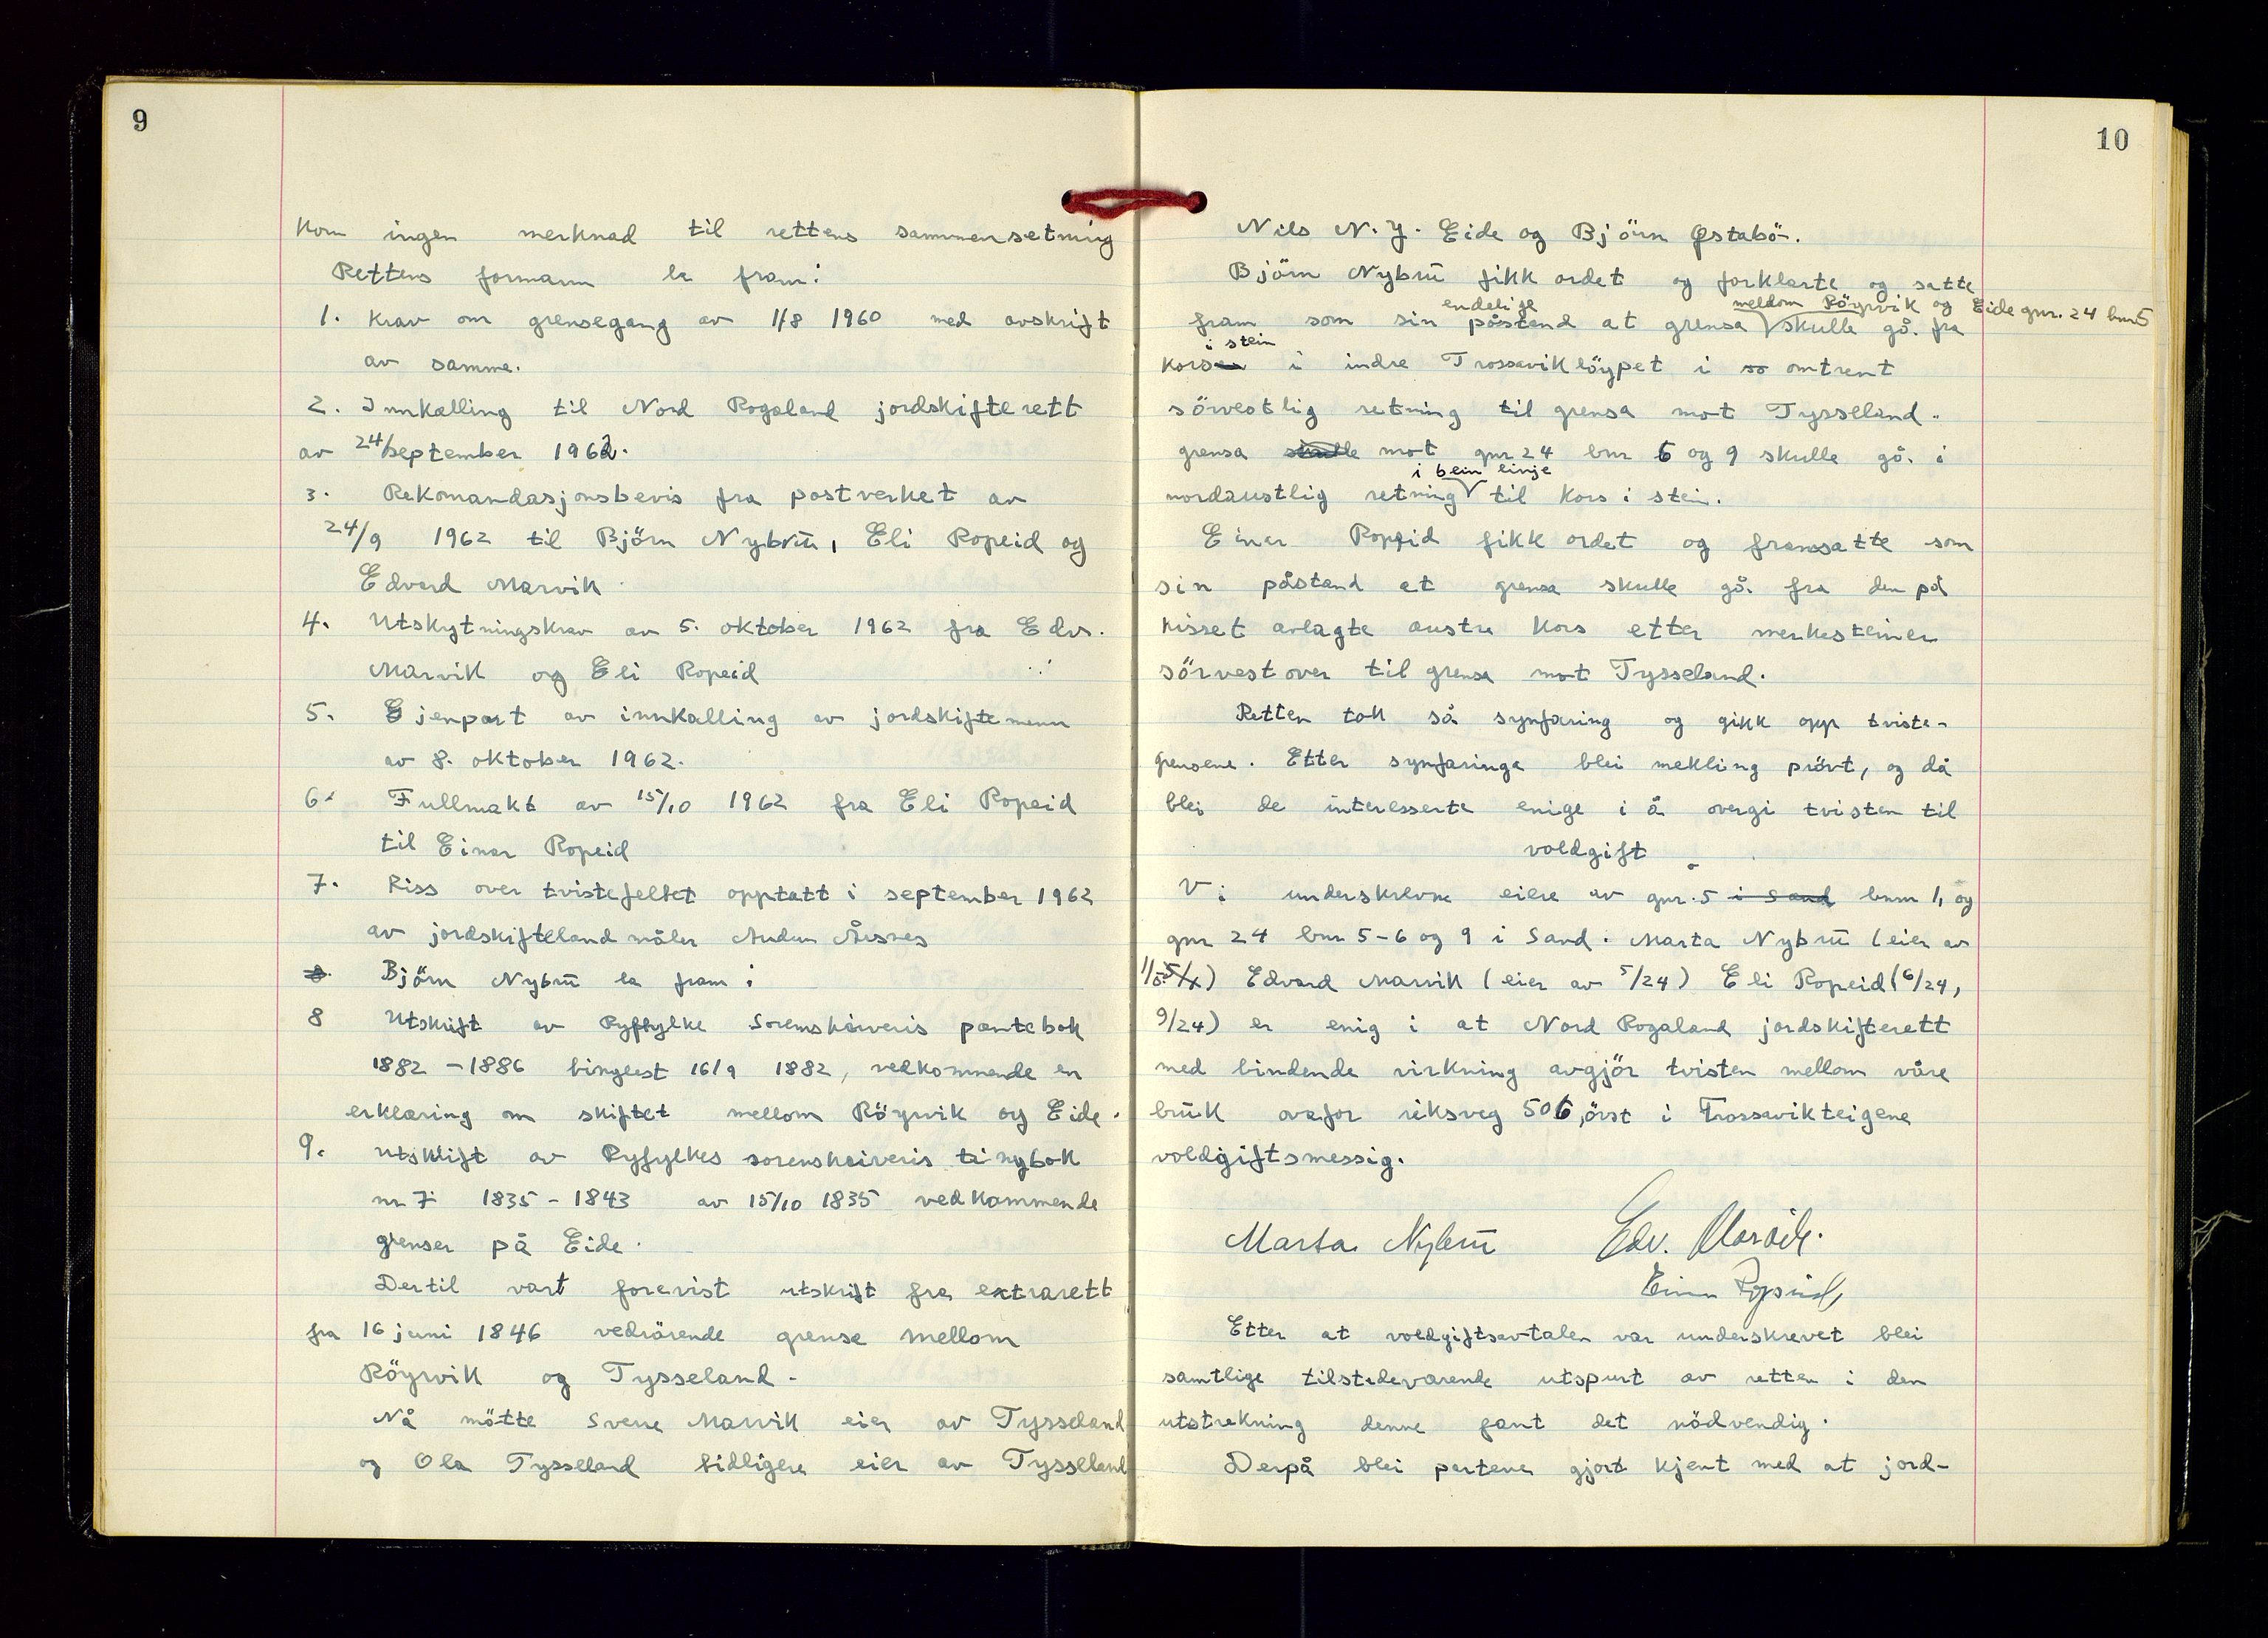 9
Kom ingen merknad til rettens sammensetning
Rettens formann la fram:
1. Krav om grensegang av 1/8 1960 med avskrift
av samme.
2. Innkalling til Nord Rogaland jordskifterett
av 24/september 1962.
3. Rekomandasjonsbevis fra postverket av
24/9 1962 til Björn Nybrū, Eli Ropeid og
Edvard Marvik
4. Utskytningskrav av 5. oktober 1962 fra Edv.
Marvik og Eli Ropeid
5. Gjenpart av innkalling av jordskiftemenn
av 8. oktober 1962.
6. Fullmakt av 15/10 1962 fra Eli Ropeid
til Einar Ropeid
7. Riss over tvistefeltet opptatt i september 1962
av jordskiftelandmåler Audun Åsnes
8. Björn Nybrū la fram:
8 Utskrift av Ryfylke Sorenskriveris pantebok
1882 - 1886 tinglest 16/9 1882, vedkommende en
erklæring om skiftet mellom Röyrvik og Eide.
9. Utskrift av Ryfylkes sorenskriveris tingbok
nr 7 1835 - 1843 av 15/10 1835 vedkommende
grenser på Eide.
Dertil vart forevist utskrift fra extrarett
fra 16 juni 1846 vedrörende grense mellom
Röyrvik og Tysseland.
Nå mötte Sverre Marvik eier av Tysseland
og Ola Tysseland tidligere eier av Tysseland
10
Nils N. Y. Eide og Björn Østabö.
Björn Nybrū fikk ordet og forklarte og satte
endelige mellom Röyrvik og Eide gnr. 24 bnr 5
fram som sin påstand at grensa skulle gå fra
i stein
kors i indre Trossavikløypet i so omtrent
sörvestlig retning til grensa mot Tysseland.
grensa skulle mot gnr 24 bnr 6 og 9 skulle gå i
i bein linje
nordaustlig retning til kors i stein.
Einar Ropeid fikk ordet og framsatte som
sin påstand at grensa skulle gå fra den på
risset avlagte austre kors etter merkesteinen
sörvestover til grensa mot Tysseland.
Retten tok så synfaring og gikk opp tviste-
grensene. Etter synfaringa blei mekling prövt, og då
blei de interesserte enige i å overgi tvisten til
voldgift
Vi underskrevne eiere av gnr. 5 i Sand bnr 1, og
gnr 24 bnr 5-6 og 9 i Sand. Marta Nybrū (eier av
1/5) Edvard Marvik (eier av 5/24) Eli Ropeid (6/24,
9/24) er enig i at Nord Rogaland jordskifterett
med bindende virkning avgjör tvisten mellom våre
bruk ovafor riksveg 506, örst i Trossavikteigene
voldgiftsmessig.
Marta Nybrū Edv. Marvik.
Einar Ropeid
Etter at voldgiftsavtalen var underskrevet blei
samtlige tilstedeværende utspurt av retten i den
utstrekning denne fant det nödvendig.
Derpå blei partene gjort kjent med at jord-